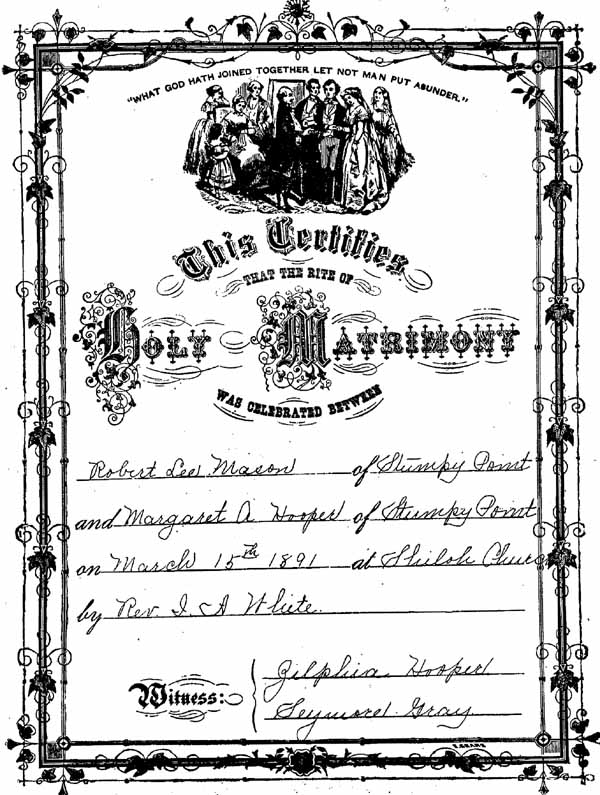 "WHAT GOD HATH JOINED TOGETHER LET NOT MAN PUT ASUNDER."
This Certifies
THAT THE RITE OF
HOLY MATRIMONY
WAS CELEBRATED BETWEEN
Robert Lee Mason of Stumpy Point
and Margaret A Hooper of Stumpy Point
on March 15th 1891 at Shiloh Church
by Rev. I. A White
Zilphia Hooper
Witness:
Seymore Gray